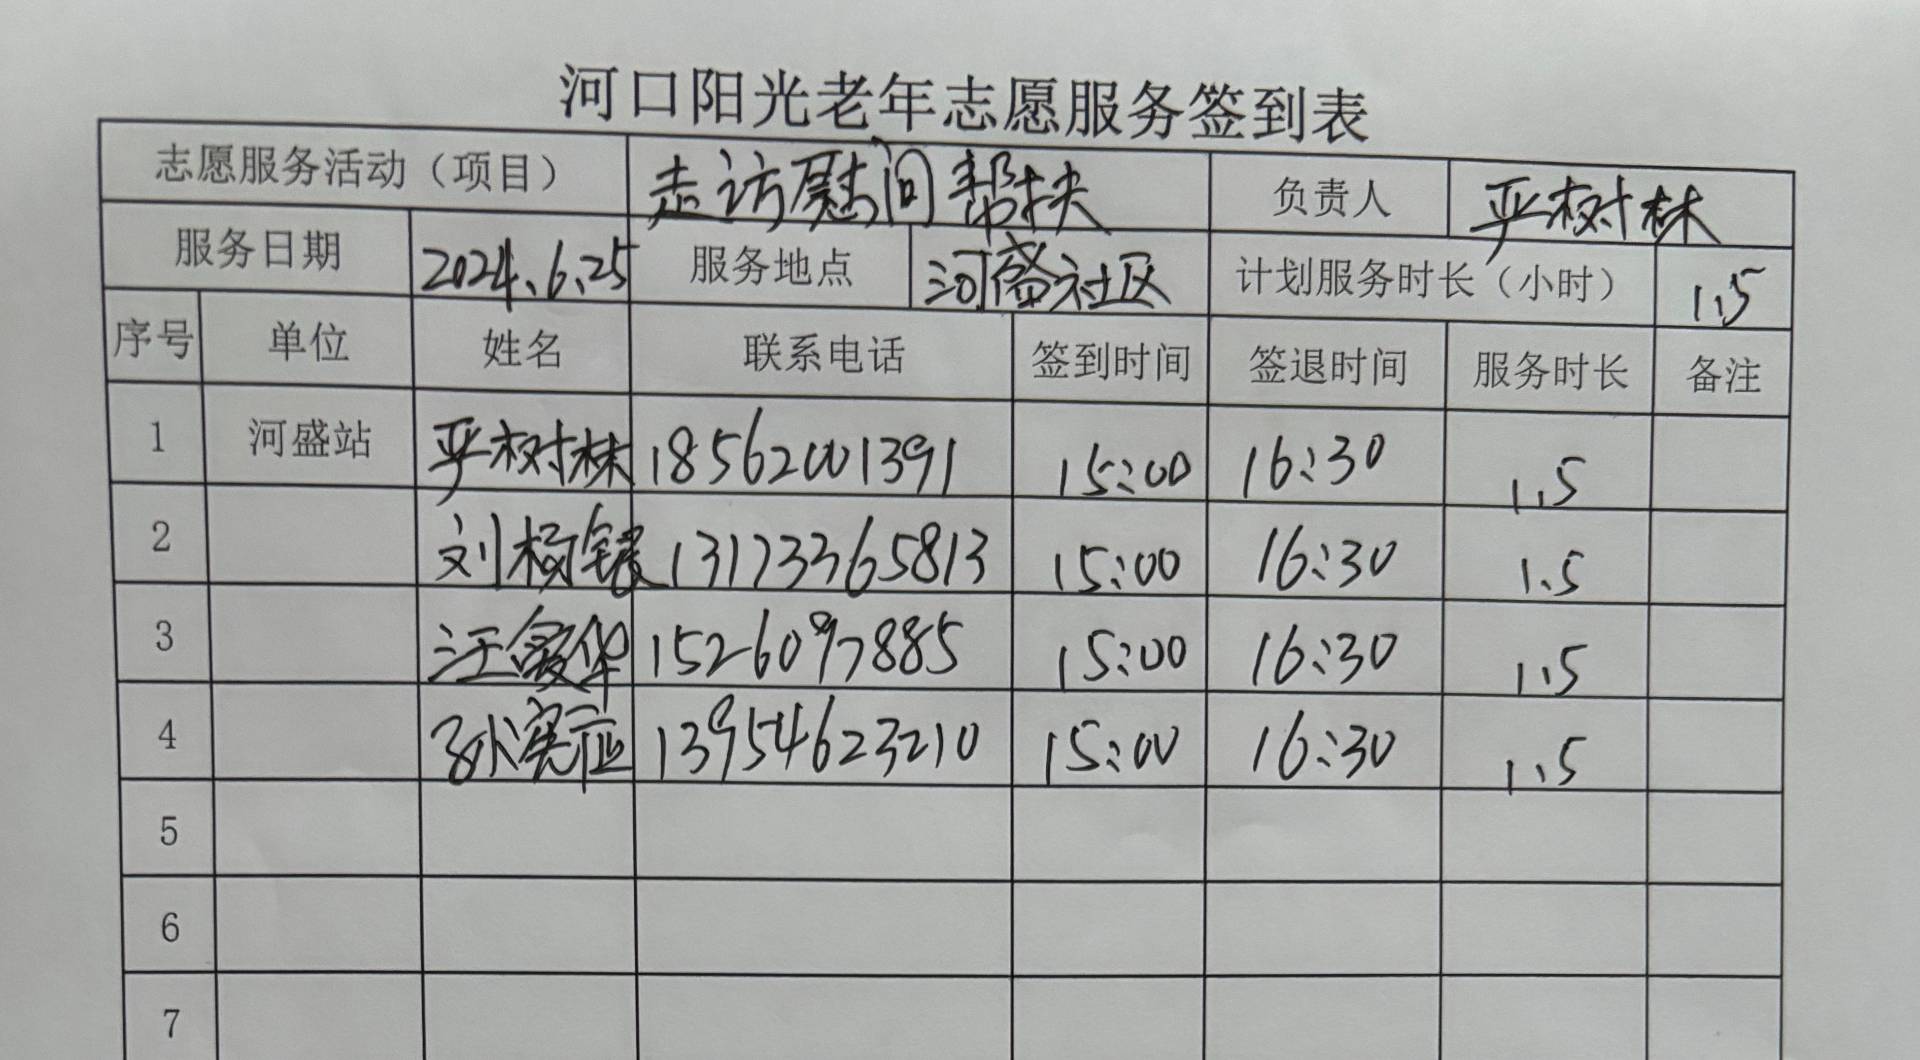 河口阳光老年志愿服务签到表
志愿服务活动（项目） 走访慰问帮扶 负责人 严树林
服务日期 2024.6.25 服务地点 河盛社区 计划服务时长（小时） 1.5
序号 单位 姓名 联系电话 签到时间 签退时间 服务时长 备注
1 河盛站 严树林 18562001391 15:00 16:30 1.5
2 刘杨 13173365813 15:00 16:30 1.5
3 汪爱华 1526097885 15:00 16:30 1.5
4 孙 13954623210 15:00 16:30 1.5
5
6
7